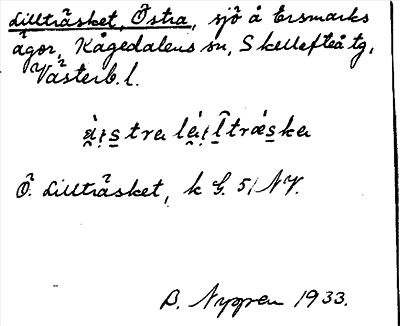 Lillträsket, Östra, sjö å Ersmarks
ägor, Kågedalens sn, Skellefteå tg,
Västerb. l.
Ö. Lillträsket, k G. 51 NV.
B. Nygren 1933.